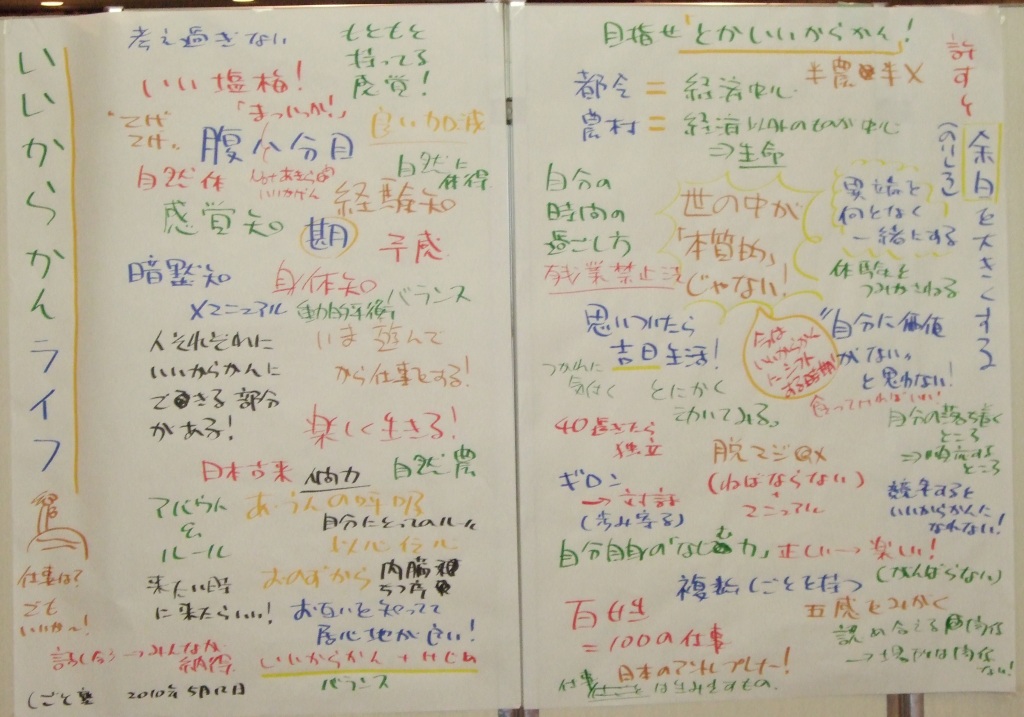 いいからかんライフ
考え過ぎない
もともと
持ってる
感覚!
いい塩梅!
「まっいっか!」
"てげ
てげ"
良い加減
腹八分目
自然体
いいかげん
自然に
体得
経験知
感覚知
勘
予感
暗黙知
身体知
×マニュアル
動的平衡
バランス
人それぞれに
いいからかんに
できる部分
がある!
いま遊んで
から仕事をする!
楽しく生きる!
日本古来
自然農
アバウト
を
ルール
あ・うんの呼吸
自分にとってのルール
以心伝心
おのずから
来たい時
に来たらいい!
お互いを知ってて
居心地が良い!
仕事は?
でも
いいか〜!
話し合う→みんなが
納得
いいからかん+けじめ
バランス
しごと塾 2010年5月12日
目指せ「とかいいからかん」!
半農半X
都会=経済中心
農村=経済以外のものが中心
⇒生命
許すと
余白を大きくする
(のりしろ)
自分の
時間の
過ごし方
残業禁止法
世の中が
「本質的」
じゃない!
異端を
何となく
一緒にする
体験を
つみかさねる
思いついたら
吉日生活!
今は
いいからかん
にシフト
する時期!
"自分に価値
がない"
と思わない!
食ってければいい!
つかれに
気付く
とにかく
動いてみる。
自分の落ち着く
ところ
⇒
ところ
40過ぎたら
独立
脱マジメ
(ねばならない)
マニュアル
ギロン
→対話
(歩み寄る)
競争すると
いいからかんに
なれない!
自分自身の「なじむ力」
正しい→楽しい!
(がんばらない)
複数しごとを持つ
百姓
=100の仕事
五感をみがく
認め合える関係
→場所は関係
ない!
日本のアントレプレナー!
仕事は生み出すもの。